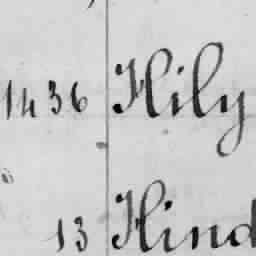 1436 Hily
13 Hind